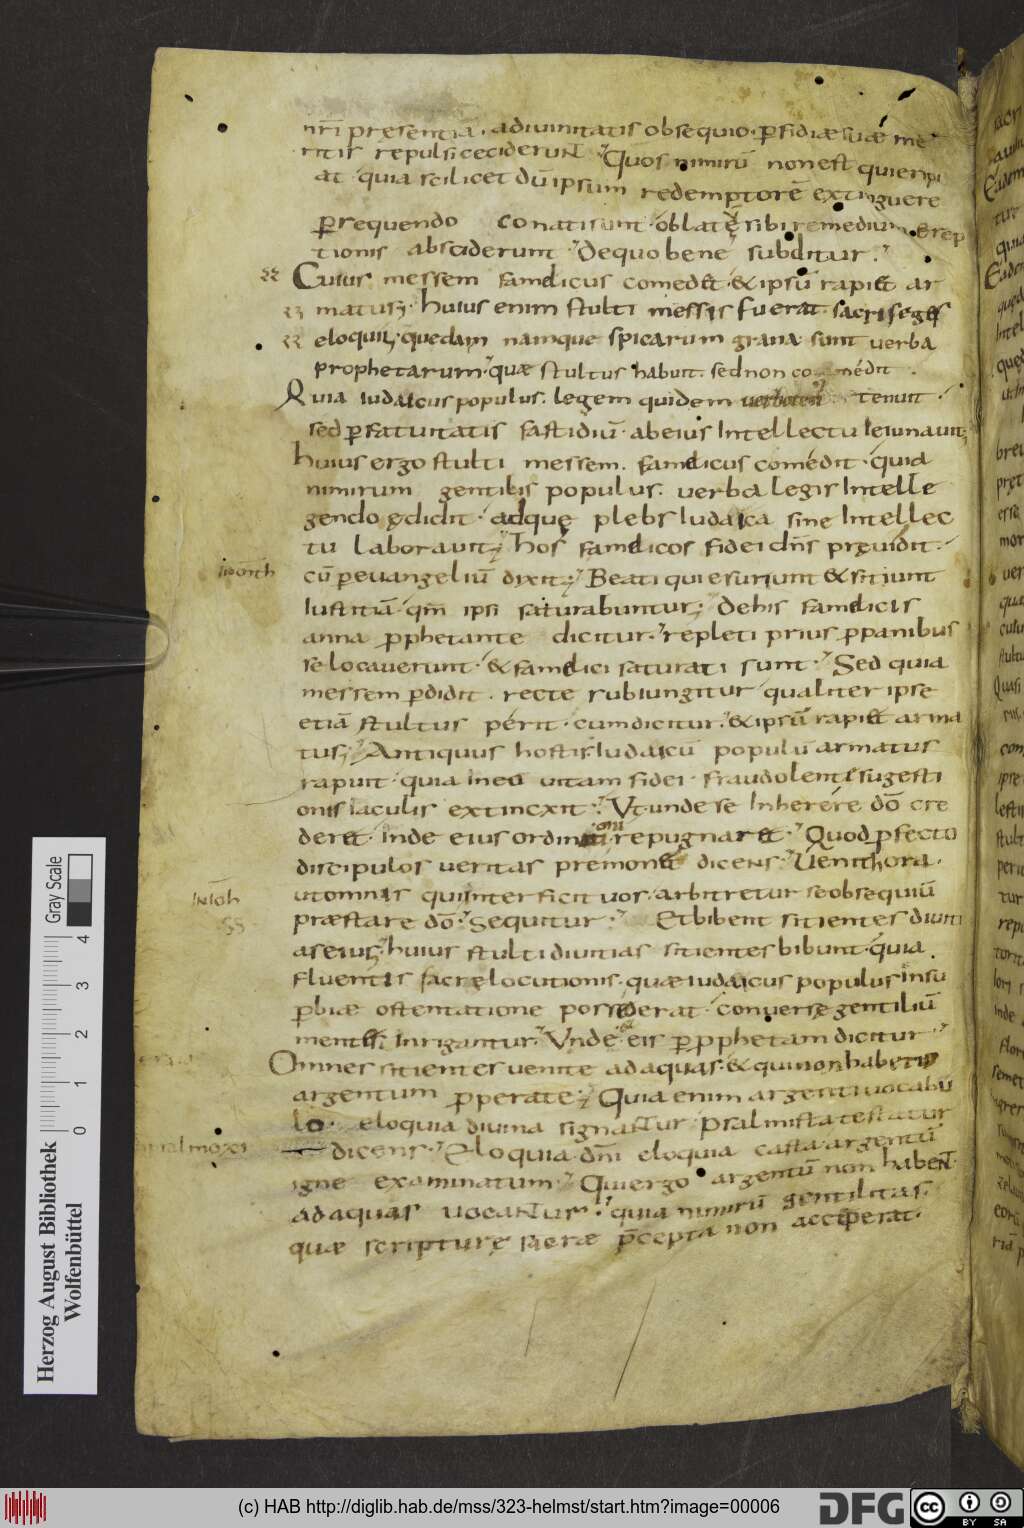 nr̄i presentiā. adiuinitatis obsequio. ꝑfidiæ suæ me
ritis repulsi ceciderunt. Quos nimirū non est qui eripi
at. quia scilicet dū ipsum redemptorē extinguere
ꝑsequendo conati sunt. oblatę sibi remedium erep
tionis absciderunt. De quo bene subditur.
Cuius messem famelicus comedet. & ipsū rapiet ar
matus; huius enim stulti messis fuerat. sacri seges
eloquii. quedam namque spicarum grana sunt verba
prophetarum. quæ stultus habuit. sed non comédit.
Quia iudaicus populus. legem quidem tenuit.
sed ꝑ fatuitatis fastidiū. ab eius intellectu ieiunauit;
huius ergo stulti messem. famelicus comédit. quia
nimirum gentilis populus. verba legis intelle
gendo ędidit. ad quę plebs iudaica sine intellec
tu laborauit; hos famelicos fidei dn̄s pręuidit.
cū ꝑ euangeliū dixit; Beati qui esuriunt & sitiunt
iustitiā. qm̄ ipsi saturabuntur; De his famelicis
anna ꝓphetante dicitur. repleti prius ꝓ panibus
se locauerunt. & famelici saturati sunt. Sed quia
messem ꝑdidit. recte subiungitur qualiter ipse
etiā stultus périt. cum dicitur. & ipsū rapiet arma
tus; Antiquus hostis iudaicū populū armatus
rapuit. quia in eo uitam fidei. fraudolente sugesti
onis iaculis extincxit. Ut unde se inherére dō cre
deret. inde eius ordinationi repugnaret. Quod ꝓfecto
discipulos ueritas premonet dicens. Uenit hora.
ut omnis qui interficit uos. arbitretur se obsequiū
præstare dō. Sequitur. Et bibent sitientes diuiti
as eius; huius stulti diuitias sitientes bibunt. quia
fluentis sacrę locutionis. quæ iudaicus populus in su
ꝑbiæ ostentatione possederat. conuersę gentiliū
mentes inrigantur. Unde eis ꝑ ꝓphetam dicitur
Omnes sitientes uenite ad aquas. & qui non habetis
argentum ꝓperate; Quia enim argenti uocabu
lo eloquia diuina signantur. Psalmista testatur
dicens. Eloquia dn̄i eloquia casta. argentū
igne examinatum. Qui ergo argentū non habent
ad aquas uocantur. quia nimirū gentilitas.
quæ scripturę sacræ p̄cepta non acceperat.
IN IOH
Gray Scale
0 1 2 3 4
Herzog August Bibliothek
Wolfenbüttel
(c) HAB http://diglib.hab.de/mss/323-helmst/start.htm?image=00006
DFG
cc BY SA